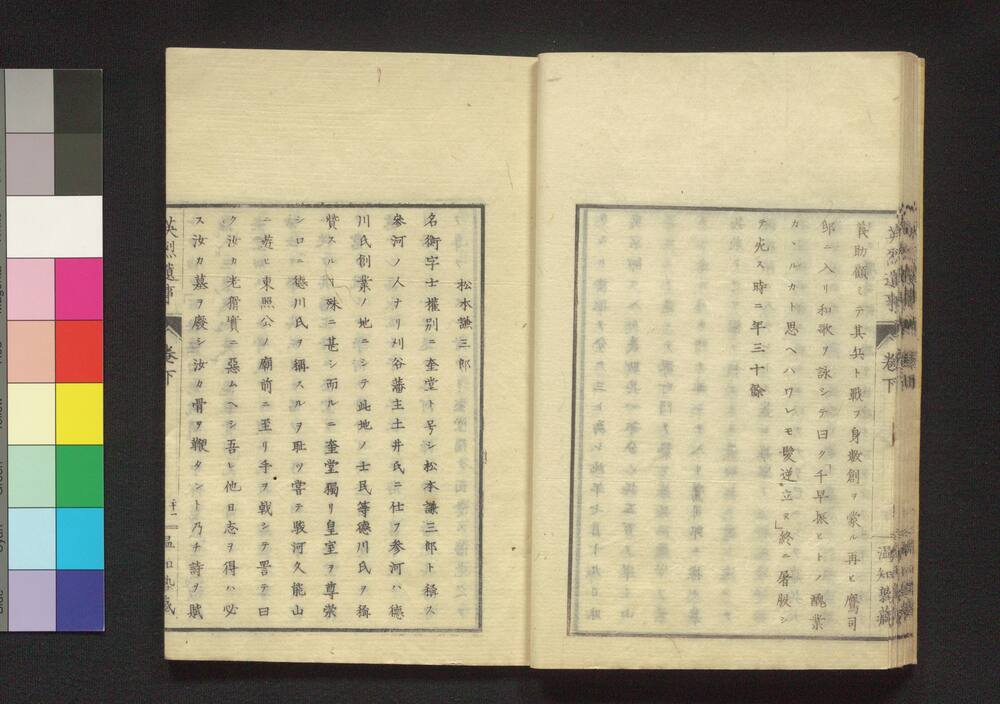 義助顧ミテ其兵ト戰フ身數創ヲ蒙ル再ヒ鷹司
邸ニ入リ和歌ヲ詠シテ曰ク「千早振ヒトノ醜業
カヽルカト思ヘハワレモ髪逆立ヌ」終ニ屠腹シ
テ死ス時ニ年三十餘
卷下
温知叢藏
松本謙三郎
名衡字士權別ニ奎堂ト号シ松本謙三郎ト稱ス
參河ノ人ナリ刈谷藩主土井氏ニ仕フ参河ハ德
川氏創業ノ地ニシテ此地ノ士民等德川氏ヲ稱
賛スルヿ殊ニ甚シ而ルニ奎堂獨リ皇室ヲ尊崇
シロニ德川氏ヲ稱スルヲ耻ツ嘗テ駿河久能山
ニ遊ヒ東照公ノ廟前ニ至リ手ヲ戟シテ罵テ曰
ク汝カ老猾實ニ惡ムヘシ吾レ他日志ヲ得ハ必
ス汝カ墓ヲ廢シ汝カ骨ヲ鞭タント乃チ詩ヲ賦
英烈遺事
卷下